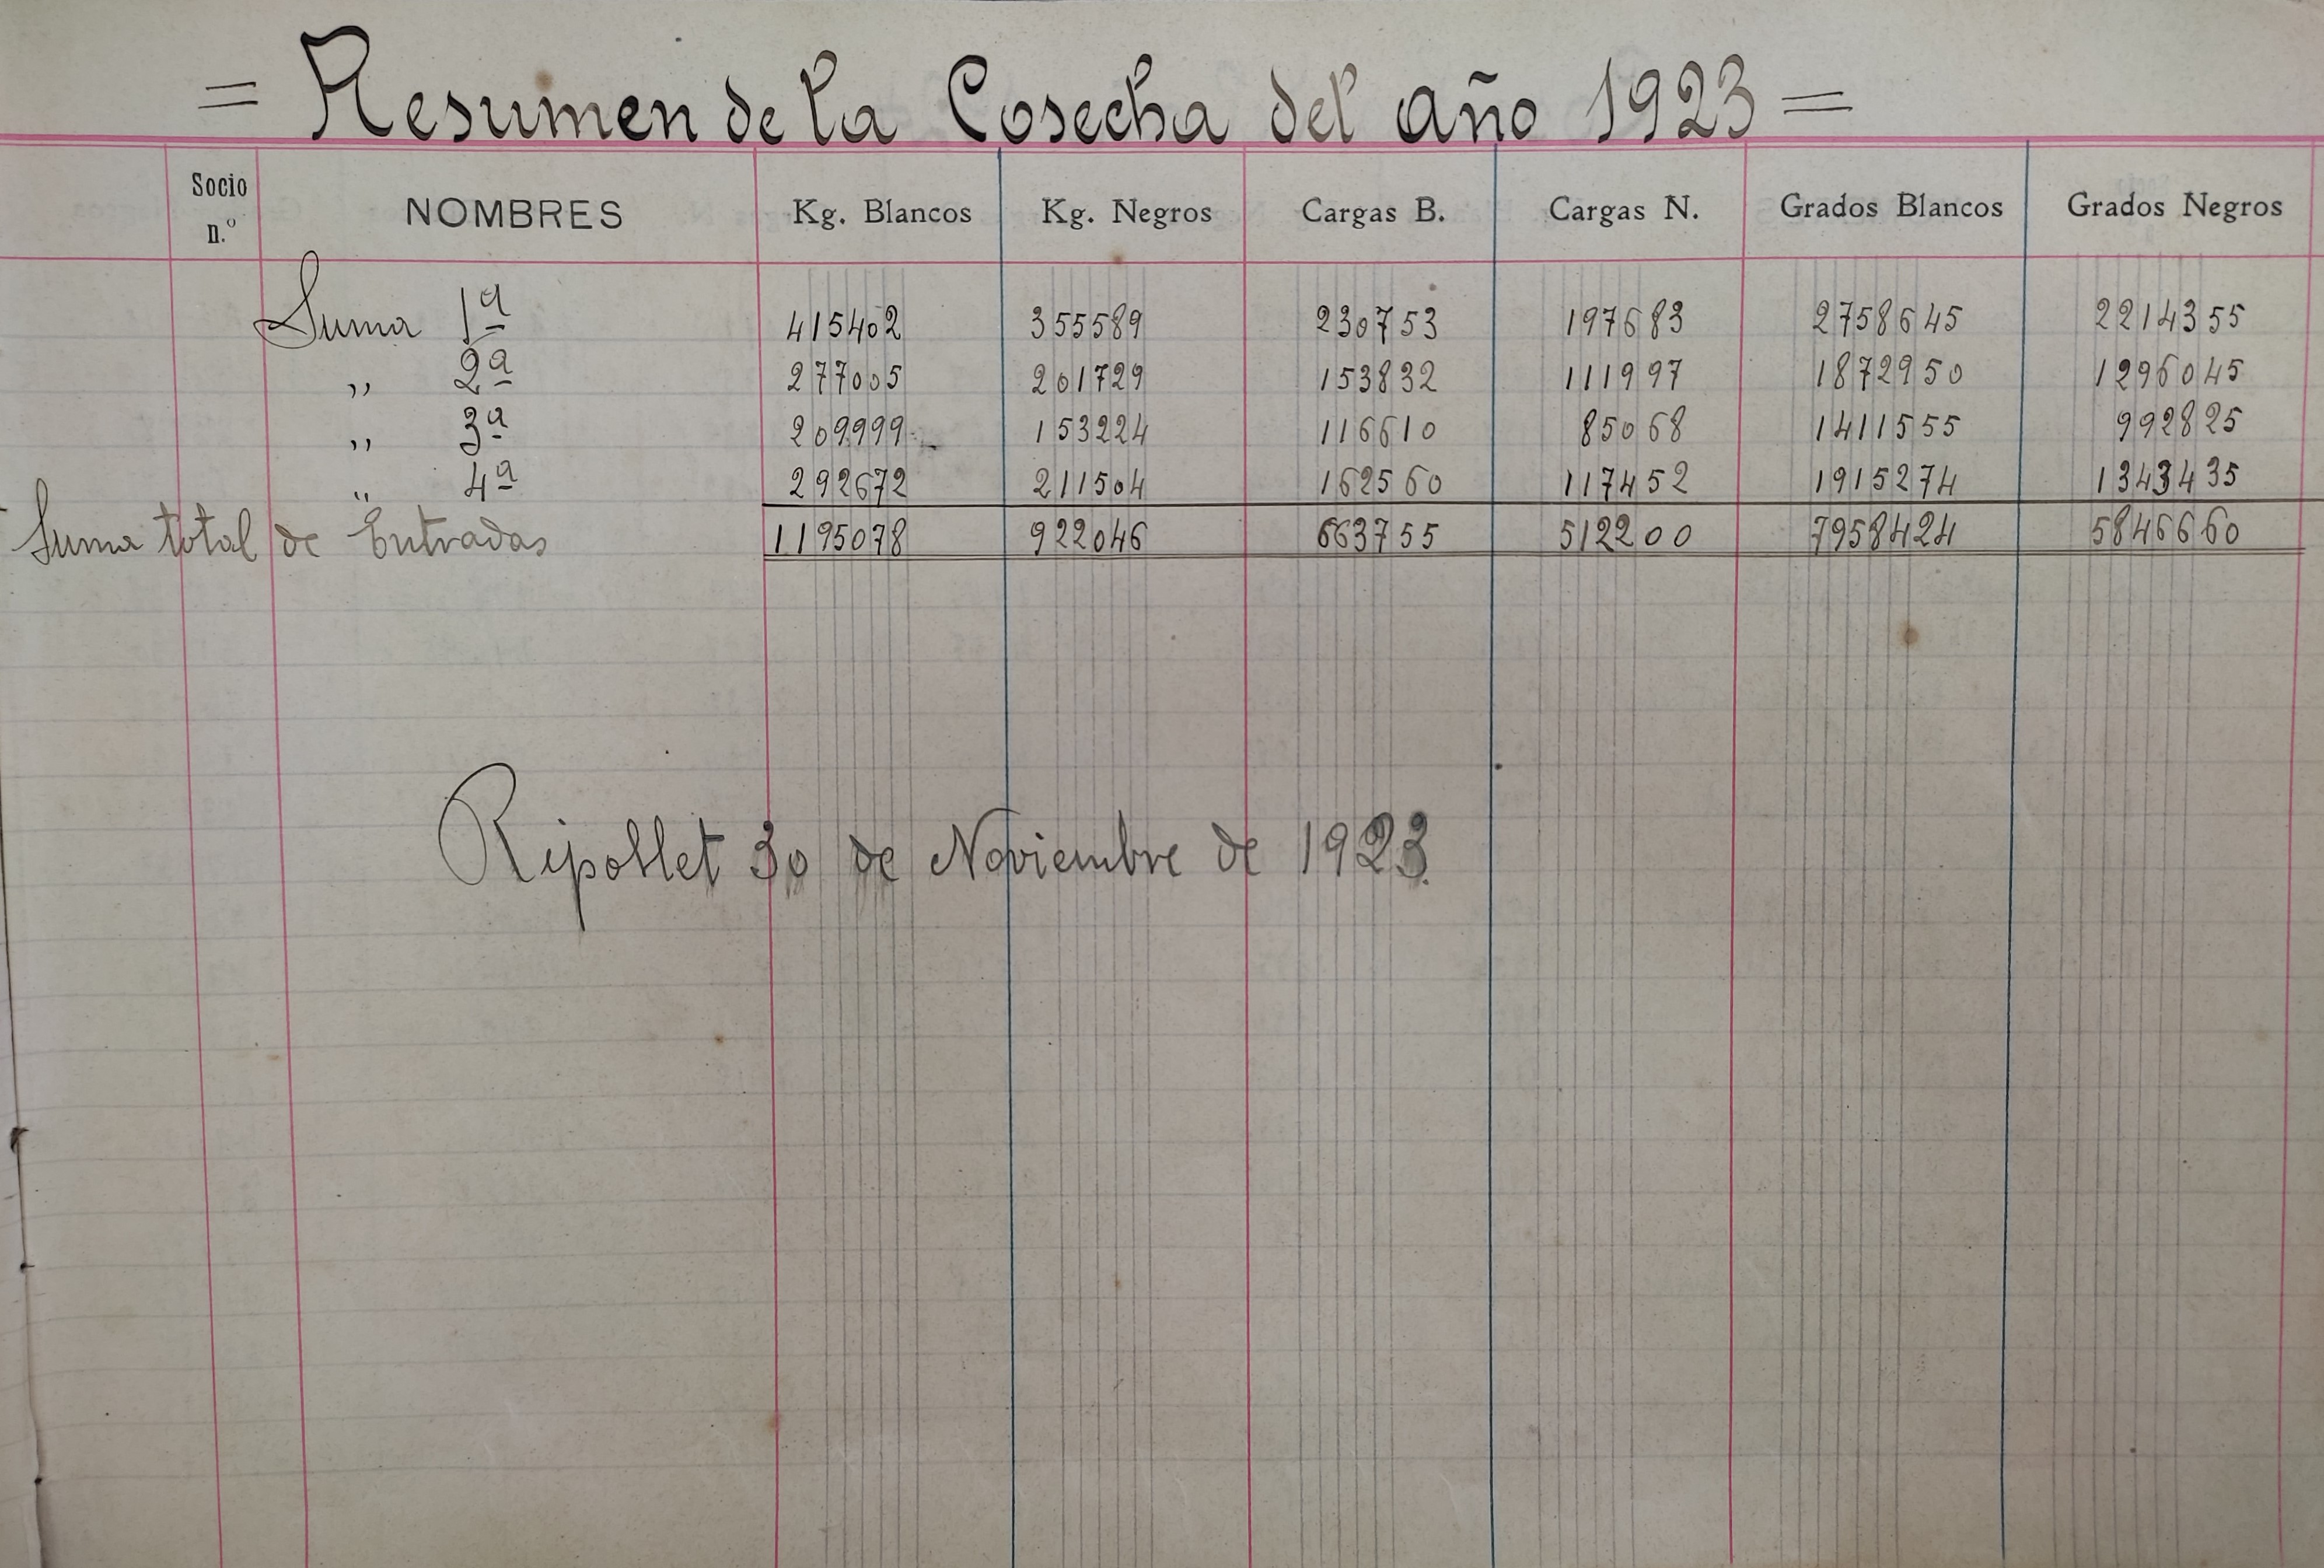 = Resumen de la Cosecha del año 1923 =
Socio n.º NOMBRES Kg. Blancos Kg. Negros Cargas B. Cargas N. Grados Blancos Grados Negros
Suma 1ª 415402 355589 230753 197683 2758645 2214355
,, 2ª 277005 201729 153832 111997 1872950 1296045
,, 3ª 209999 153224 116610 85068 1411555 992825
,, 4ª 292672 211504 162560 117452 1915274 1343435
Suma total de Entradas 1195078 922046 663755 512200 7958424 5846660
Ripollet 30 de Noviembre de 1923